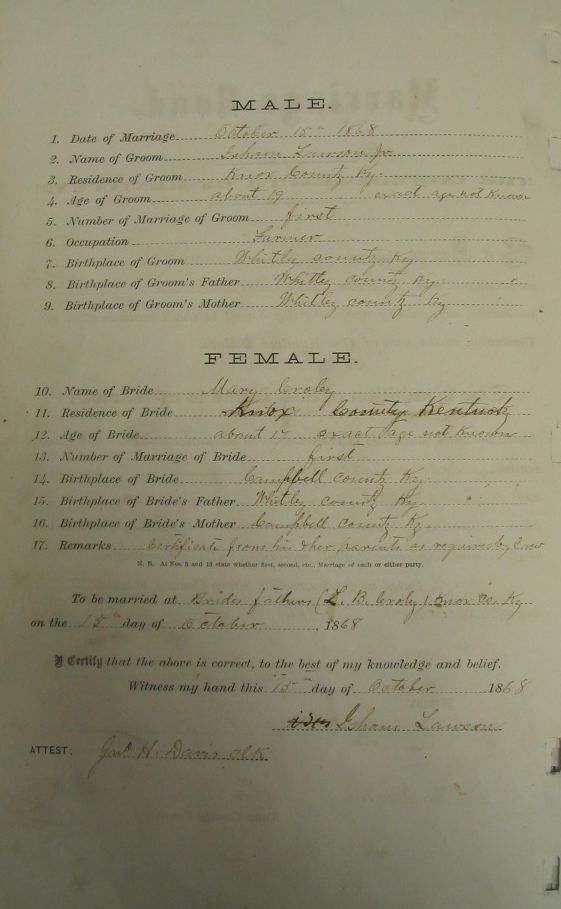 MALE.
1. Date of Marriage October 15th 1868
2. Name of Groom Isham Lawson Jr
3. Residence of Groom Knox County Ky.
4. Age of Groom about 19 exact age not known
5. Number of Marriage of Groom first
6. Occupation Farmer
7. Birthplace of Groom Whitley county Ky
8. Birthplace of Groom's Father Whitley county Ky
9. Birthplace of Groom's Mother Whitley county Ky
FEMALE.
10. Name of Bride Mary Croley
11. Residence of Bride Knox County Kentucky
12. Age of Bride about 17 exact age not known
13. Number of Marriage of Bride first
14. Birthplace of Bride Campbell county Ky.
15. Birthplace of Bride's Father Whitley county Ky
16. Birthplace of Bride's Mother Campbell county Ky.
17. Remarks Certificate from his & her parents as required by Law
N. B. At Nos. 5 and 13 state whether first, second, etc., Marriage of each or either party.
To be married at Brides fathers (L. B. Croley) Knox Co. Ky
on the 15th day of October, 1868
I Certify that the above is correct, to the best of my knowledge and belief.
Witness my hand this 15th day of October 1868
Isham Lawson
ATTEST: Jno. H. Davis clk.